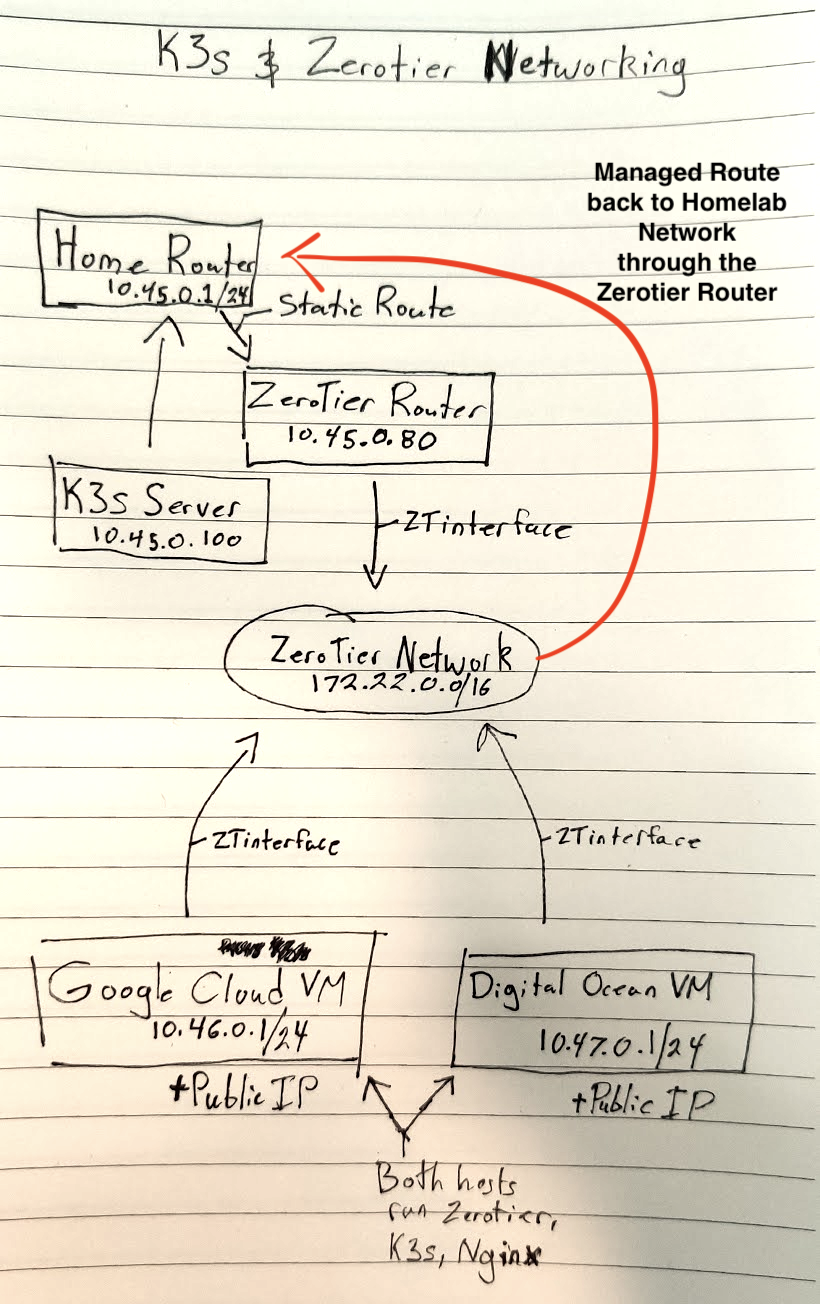 K3s & Zerotier Networking
Managed Route
back to Homelab
Network
through the
Zerotier Router
Home Router
10.45.0.1/24
Static Route
ZeroTier Router
10.45.0.80
K3s Server
10.45.0.100
ZTinterface
ZeroTier Network
172.22.0.0/16
ZTinterface
ZTinterface
Google Cloud VM
10.46.0.1/24
+Public IP
Digital Ocean VM
10.47.0.1/24
+Public IP
Both hosts
run Zerotier,
K3s, Nginx